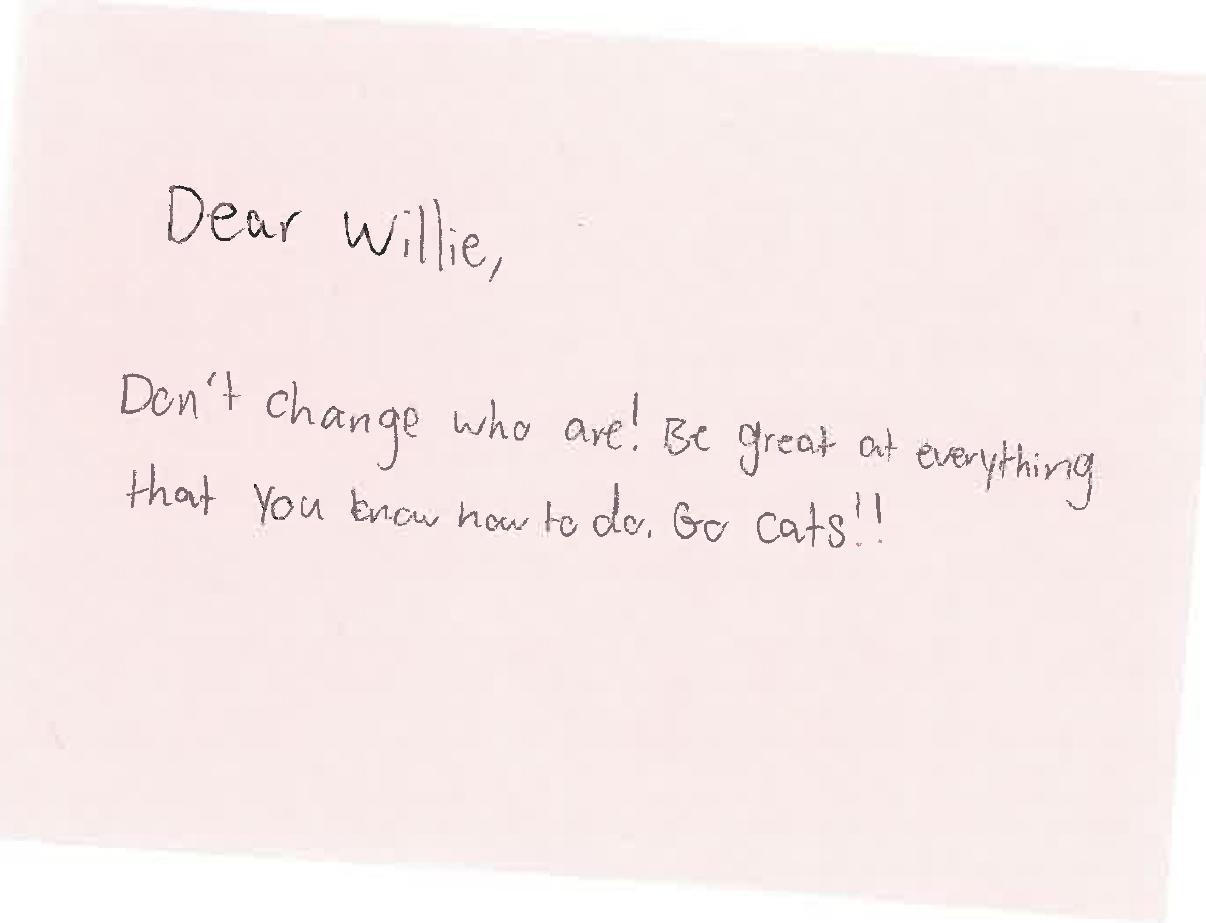 Dear Willie,
Don't change who are! Be great at everything
that you know how to do. Go cats!!